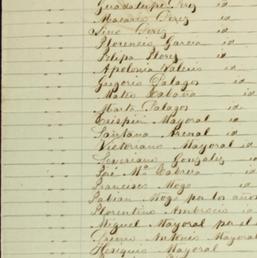 Guadalupe Perez id
Macario Perez id
Lino Perez id
Florencio Garcia id
Felipa Flores id
Apolonia Valerio id
Gregorio Palagos id
Mateo id
Marta Palagos id
Crispin Mayoral id
Santana Arenal id
Victoriano Mayoral id
Severiano Gonzales id
José Ma Cabrera id
Francisco Mogo id
Fabian Mogo por los años
Florentino Ambrocio id
Miguel Mayoral por el
Antonio Mayoral
Hesiquio Mayoral